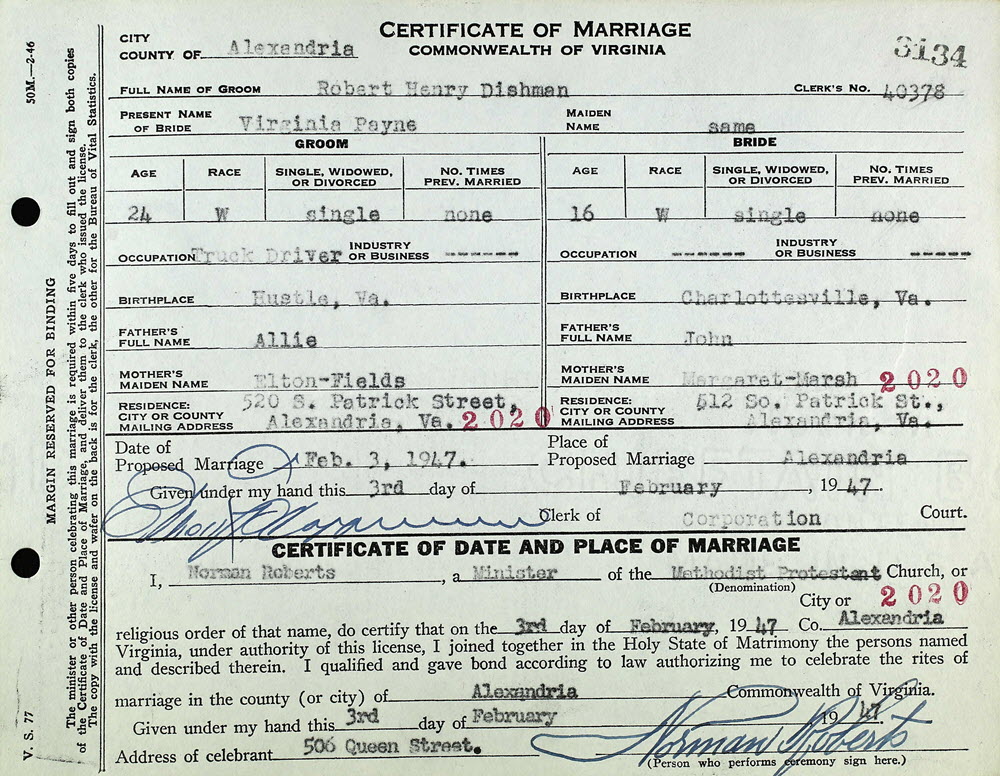 CERTIFICATE OF MARRIAGE
COMMONWEALTH OF VIRGINIA
CITY
COUNTY OF Alexandria
3134
FULL NAME OF GROOM Robert Henry Dishman CLERK'S NO. 40378
PRESENT NAME OF BRIDE Virginia Payne MAIDEN NAME same
GROOM BRIDE
AGE RACE SINGLE, WIDOWED, OR DIVORCED NO. TIMES PREV. MARRIED AGE RACE SINGLE, WIDOWED, OR DIVORCED NO. TIMES PREV. MARRIED
24 W single none 16 W single none
OCCUPATION Truck Driver INDUSTRY OR BUSINESS ------ OCCUPATION ------ INDUSTRY OR BUSINESS -----
BIRTHPLACE Hustle, Va. BIRTHPLACE Charlottesville, Va.
FATHER'S FULL NAME Allie FATHER'S FULL NAME John
MOTHER'S MAIDEN NAME Elton-Fields MOTHER'S MAIDEN NAME Margaret-Marsh 2020
RESIDENCE: 520 S. Patrick Street, RESIDENCE: 512 So. Patrick St.,
CITY OR COUNTY MAILING ADDRESS Alexandria, Va. 2020 CITY OR COUNTY MAILING ADDRESS Alexandria, Va.
Date of Proposed Marriage Feb. 3, 1947. Place of Proposed Marriage Alexandria
Given under my hand this 3rd day of February, 1947.
Clerk of Corporation Court.
CERTIFICATE OF DATE AND PLACE OF MARRIAGE
I, Norman Roberts, a Minister of the Methodist Protestant Church, or
(Denomination)
City or 2020
religious order of that name, do certify that on the 3rd day of February, 1947 Co. Alexandria
Virginia, under authority of this license, I joined together in the Holy State of Matrimony the persons named
and described therein. I qualified and gave bond according to law authorizing me to celebrate the rites of
marriage in the county (or city) of Alexandria Commonwealth of Virginia.
Given under my hand this 3rd day of February 1947
Address of celebrant 506 Queen Street. Norman Roberts
(Person who performs ceremony sign here.)
50M.—2-46
MARGIN RESERVED FOR BINDING
V. S. 77
The minister or other person celebrating this marriage is required within five days to fill out and sign both copies
of the Certificate of Date and Place of Marriage, and deliver them to the clerk who issued the license.
The copy with the license and wafer on the back is for the clerk, the other for the Bureau of Vital Statistics.